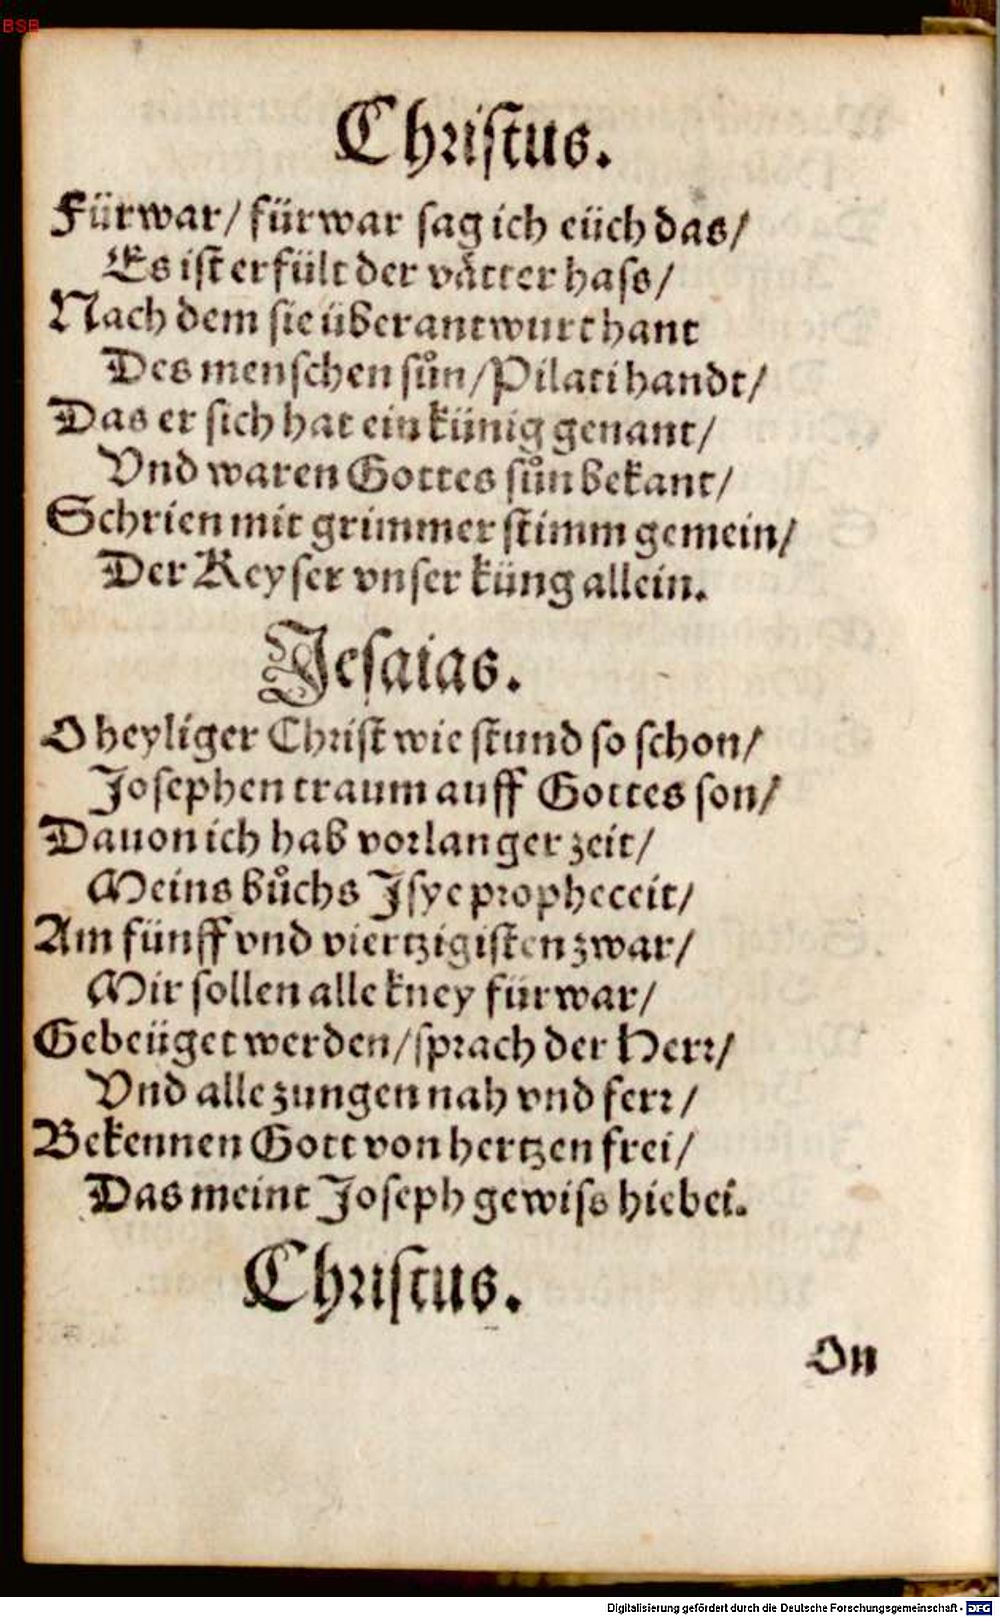 BSB
Christus.
Fürwar/ fürwar sag ich eüch das/
Es ist erfült der vätter hass/
Nach dem sie überantwurt hant
Des menschen sůn/ Pilati handt/
Das er sich hat ein künig genant/
Vnd waren Gottes sůn bekant/
Schrien mit grimmer stimm gemein/
Der Keyser vnser küng allein.
Jesaias.
O heyliger Christ wie stund so schon/
Josephen traum auff Gottes son/
Dauon ich hab vor langer zeit/
Meins bůchs Jsye propheceit/
Am fünff vnd viertzigisten zwar/
Mir sollen alle kney fürwar/
Gebeüget werden/ sprach der Herr/
Vnd alle zungen nah vnd ferr/
Bekennen Gott von hertzen frei/
Das meint Joseph gewiss hiebei.
Christus.
On
Digitalisierung gefördert durch die Deutsche Forschungsgemeinschaft - DFG